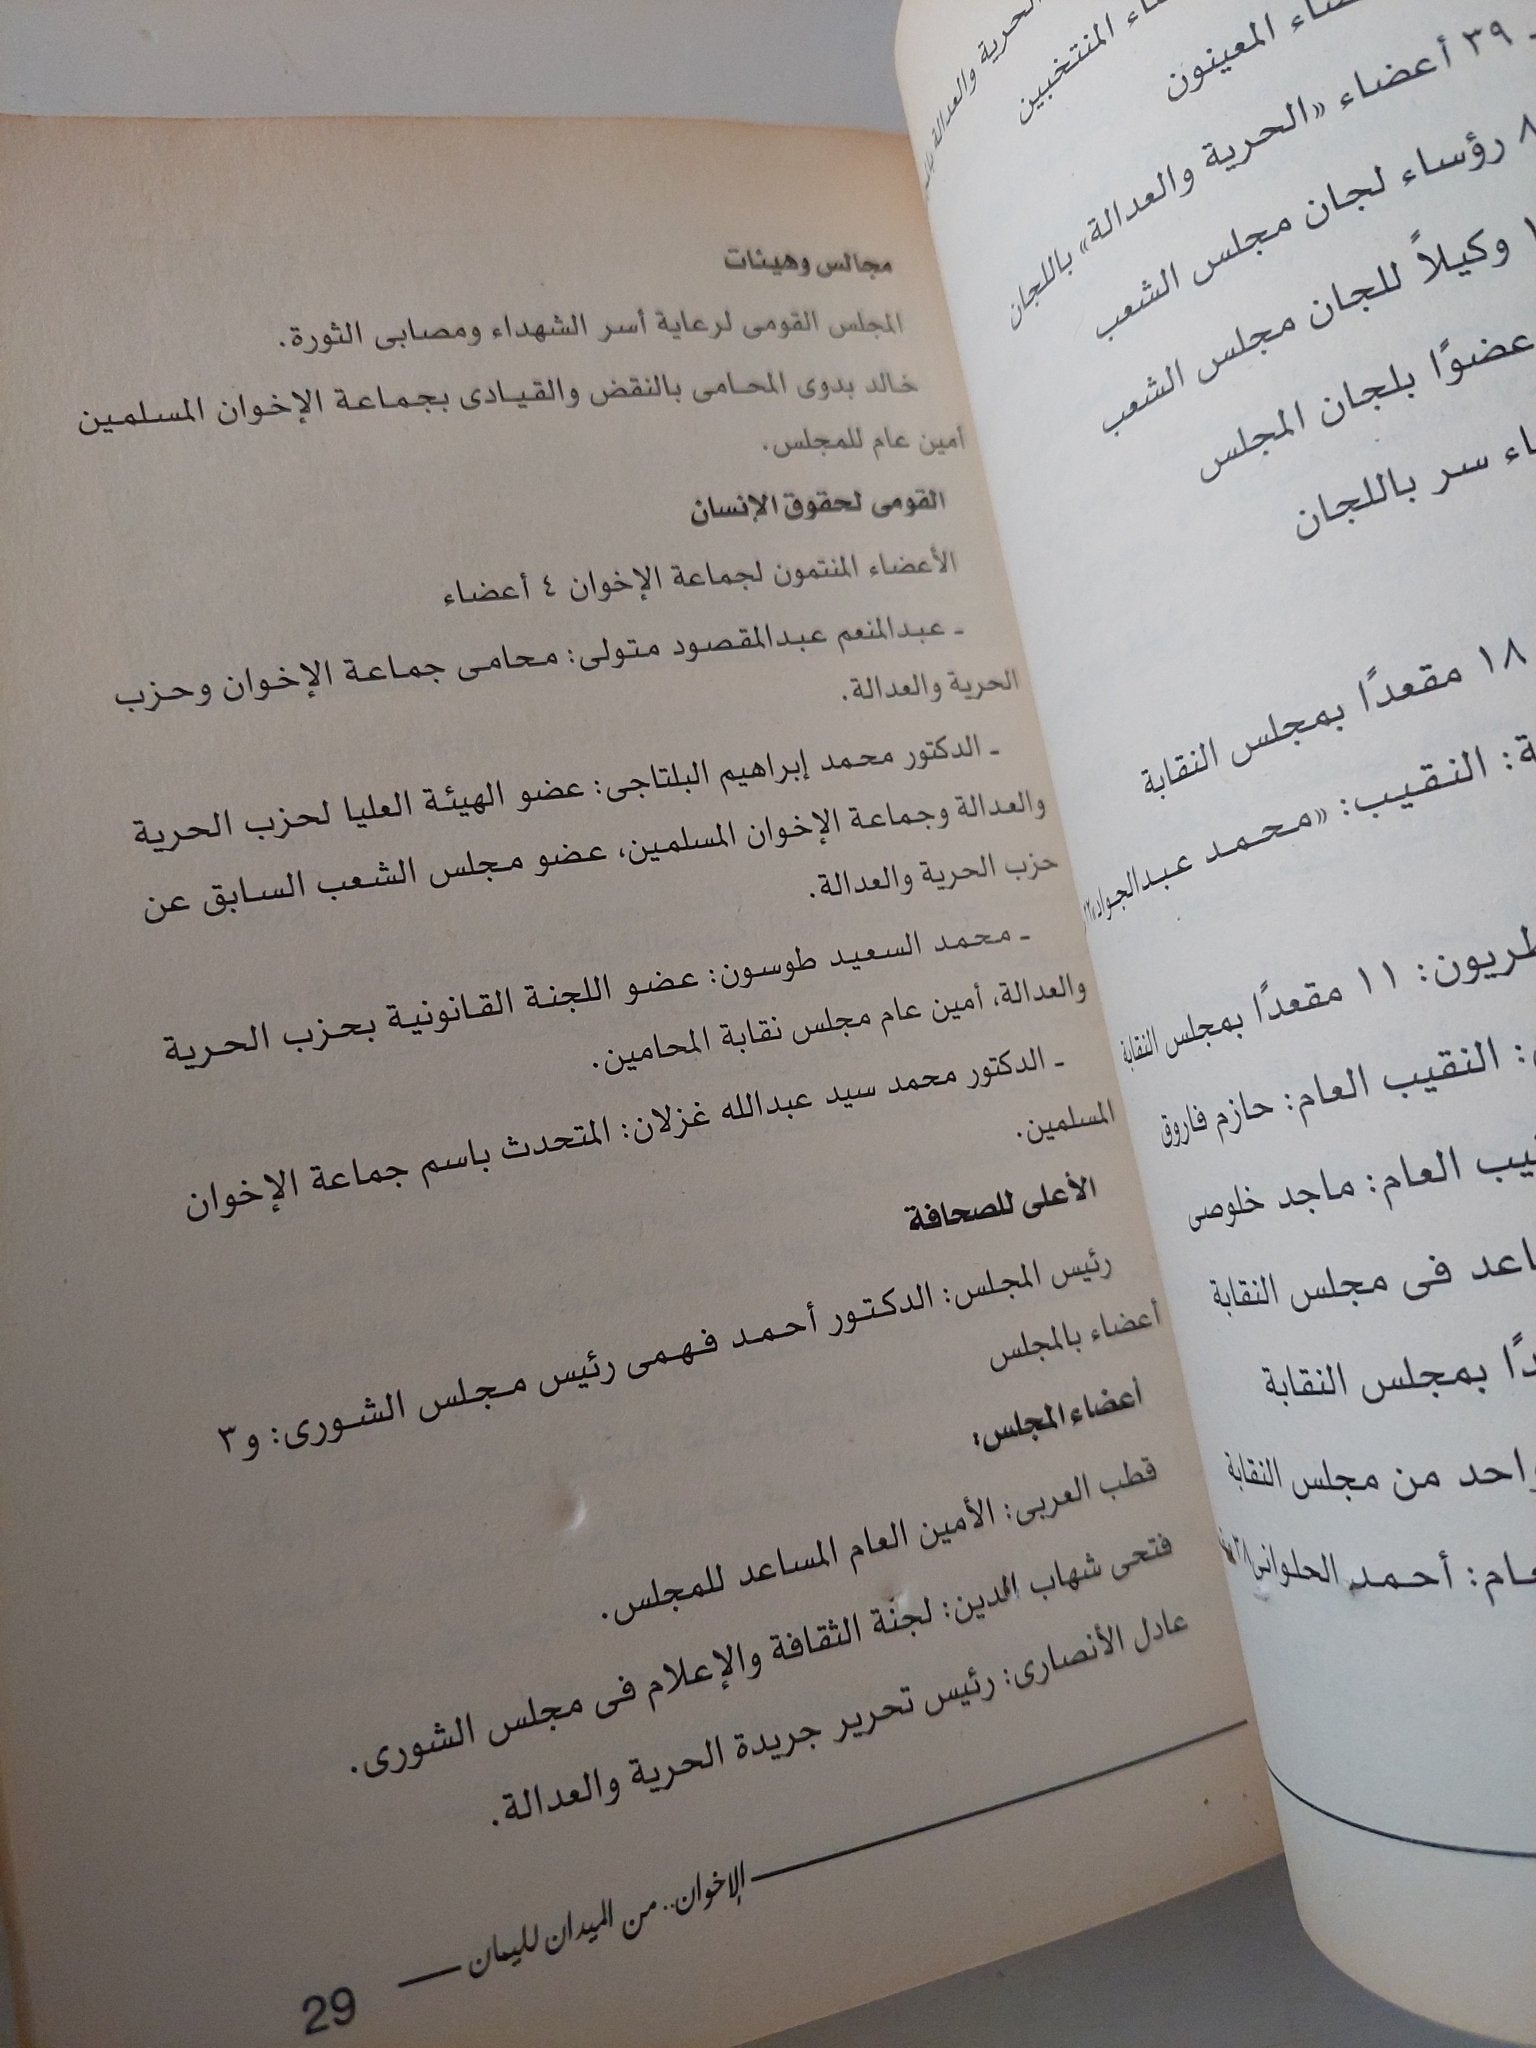 الحرية والعدالة
المنتخبين
المعينون
٣٩ أعضاء «الحرية والعدالة» باللجان
٨ رؤساء لجان مجلس الشعب
وكيلاً للجان مجلس الشعب
عضوًا بلجان المجلس
سر باللجان
١٨ مقعدًا بمجلس النقابة
النقيب: «محمد عبدالجواد»
١١ مقعدًا بمجلس النقابة
النقيب العام: حازم فاروق
العام: ماجد خلوصى
فى مجلس النقابة
بمجلس النقابة
من مجلس النقابة
أحمد الحلوانى
مجالس وهيئات
المجلس القومى لرعاية أسر الشهداء ومصابى الثورة.
خالد بدوى المحامى بالنقض والقيادى بجماعة الإخوان المسلمين
أمين عام للمجلس.
القومى لحقوق الإنسان
الأعضاء المنتمون لجماعة الإخوان ٤ أعضاء
ـ عبدالمنعم عبدالمقصود متولى: محامى جماعة الإخوان وحزب
الحرية والعدالة.
ـ الدكتور محمد إبراهيم البلتاجى: عضو الهيئة العليا لحزب الحرية
والعدالة وجماعة الإخوان المسلمين، عضو مجلس الشعب السابق عن
حزب الحرية والعدالة.
ـ محمد السعيد طوسون: عضو اللجنة القانونية بحزب الحرية
والعدالة، أمين عام مجلس نقابة المحامين.
ـ الدكتور محمد سيد عبدالله غزلان: المتحدث باسم جماعة الإخوان
المسلمين.
الأعلى للصحافة
رئيس المجلس: الدكتور أحمد فهمى رئيس مجلس الشورى: و٣
أعضاء بالمجلس
أعضاء المجلس:
قطب العربى: الأمين العام المساعد للمجلس.
فتحى شهاب الدين: لجنة الثقافة والإعلام فى مجلس الشورى.
عادل الأنصارى: رئيس تحرير جريدة الحرية والعدالة.
الإخوان.. من الميدان لليمان
29